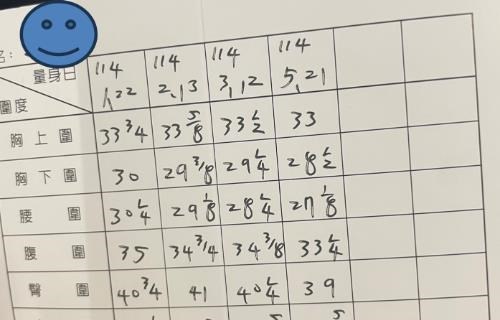 名:
量身日 114 1,22 114 2,13 114 3,12 114 5,21
圍度
胸上圍 33 3/4 33 5/8 33 1/2 33
胸下圍 30 29 3/8 29 1/4 28 1/2
腰圍 30 1/4 29 1/8 28 1/4 27 1/8
腹圍 35 34 3/4 34 3/8 33 1/4
臀圍 40 3/4 41 40 1/4 39